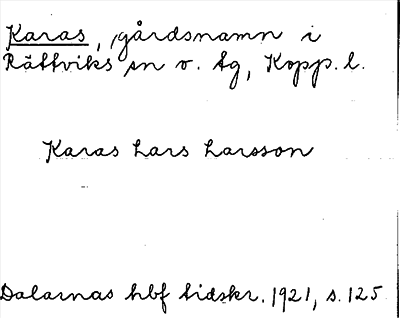 Karas, gårdsnamn i
Rättviks sn o. tg, Kopp. l.
Karas Lars Larsson
Dalarnas hbf tidskr. 1921, s. 125